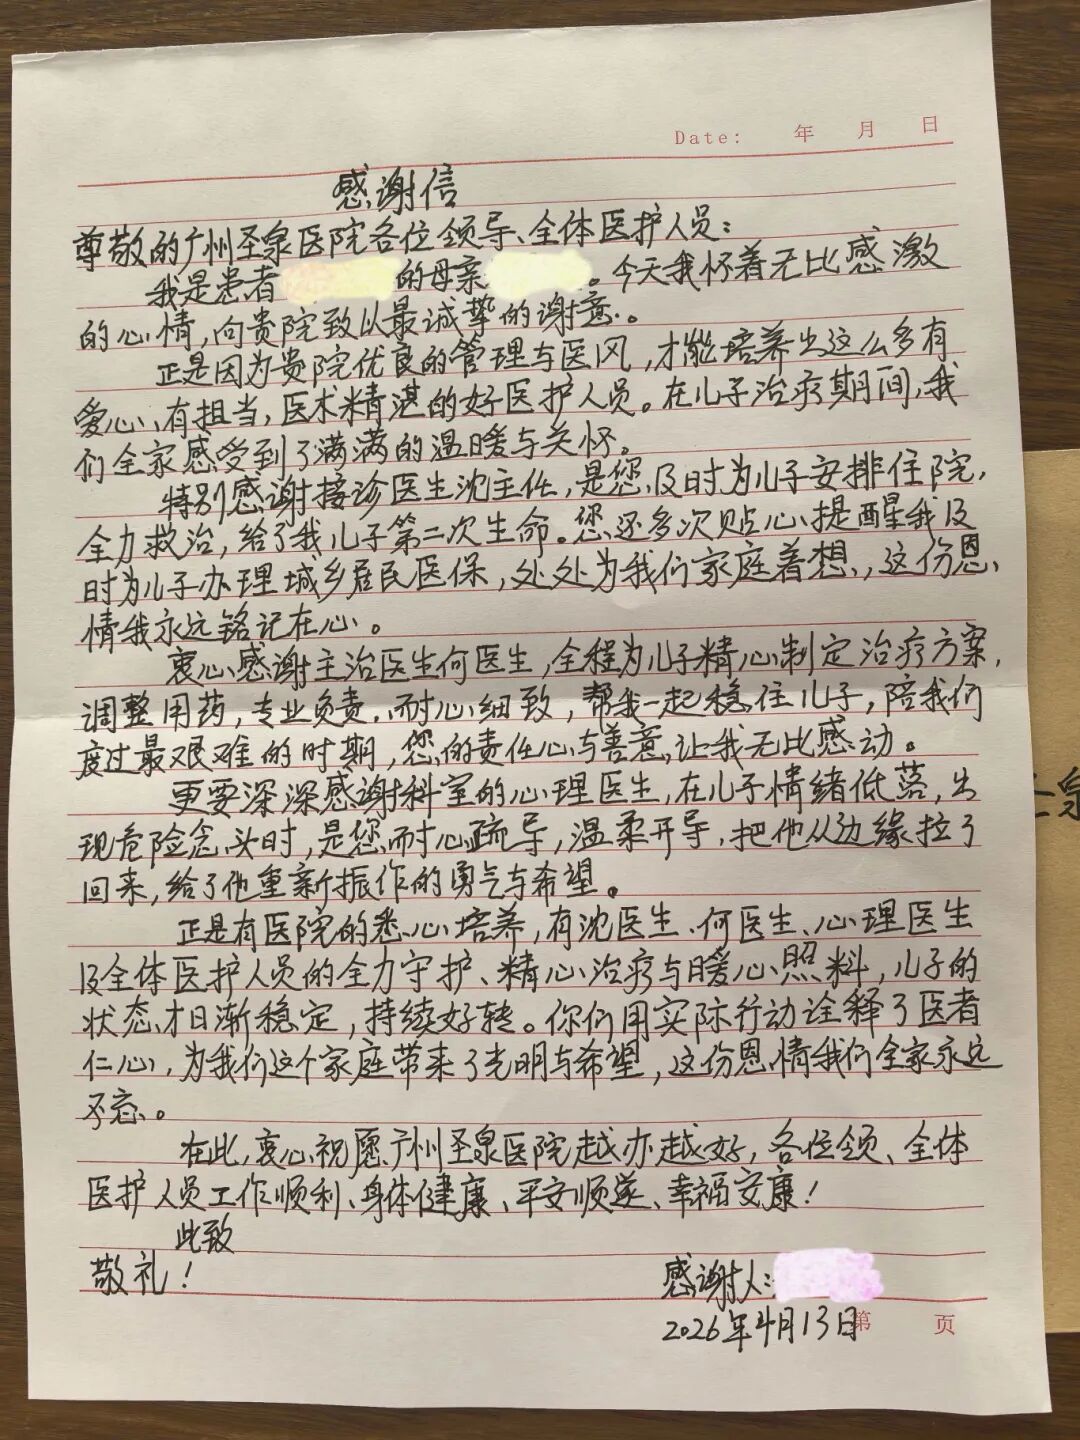 Date: 年 月 日
感谢信
尊敬的广州圣泉医院各位领导、全体医护人员：
我是患者 的母亲 。今天我怀着无比感激
的心情，向贵院致以最诚挚的谢意。
正是因为贵院优良的管理与医风，才能培养出这么多有
爱心、有担当，医术精湛的好医护人员。在儿子治疗期间，我
们全家感受到了满满的温暖与关怀。
特别感谢接诊医生沈主任，是您及时为儿子安排住院，
全力救治，给了我儿子第二次生命。您还多次贴心提醒我及
时为儿子办理城乡居民医保，处处为我们家庭着想，这份恩
情我永远铭记在心。
衷心感谢主治医生何医生，全程为儿子精心制定治疗方案，
调整用药，专业负责，耐心细致，帮我一起稳住儿子，陪我们
度过最艰难的时期，您的责任心与善意让我无比感动。
更要深深感谢科室的心理医生，在儿子情绪低落，出
现危险念头时，是您耐心疏导，温柔开导，把他从边缘拉了
回来，给了他重新振作的勇气与希望。
正是有医院的悉心培养，有沈医生、何医生、心理医生
及全体医护人员的全力守护、精心治疗与暖心照料，儿子的
状态才日渐稳定，持续好转。你们用实际行动诠释了医者
仁心，为我们这个家庭带来了光明与希望，这份恩情我们全家永远
不忘。
在此，衷心祝愿广州圣泉医院越办越好，各位领、全体
医护人员工作顺利、身体健康、平安顺遂、幸福安康！
此致
敬礼！
感谢人：
2026年4月13日
第 页